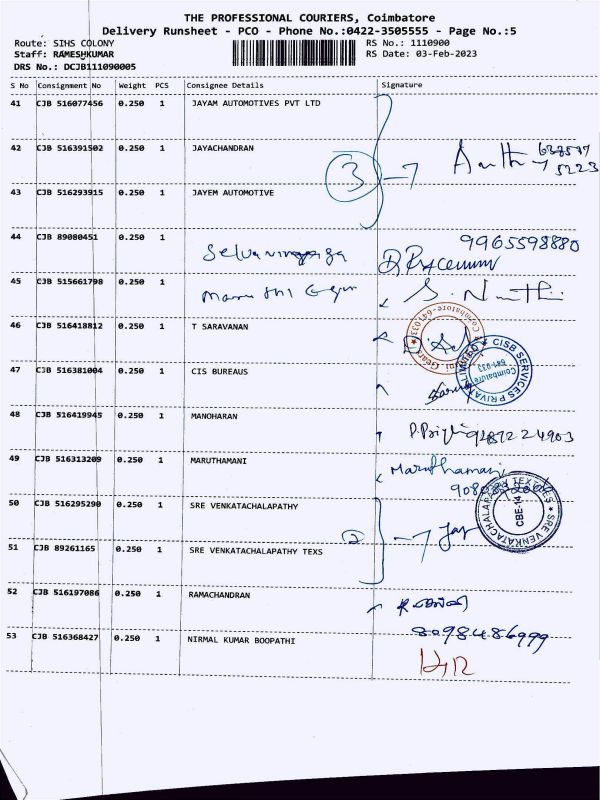 THE PROFESSIONAL COURIERS, Coimbatore
Delivery Runsheet - PCO - Phone No.:0422-3505555 - Page No.:5
Route: SIHS COLONY
RS No.: 1110900
Staff: RAMESHKUMAR
RS Date: 03-Feb-2023
DRS No.: DCJB111090005
S No Consignment No Weight PCS Consignee Details Signature
41 CJB 516077456 0.250 1 JAYAM AUTOMOTIVES PVT LTD
42 CJB 516391502 0.250 1 JAYACHANDRAN
3
43 CJB 516293915 0.250 1 JAYEM AUTOMOTIVE
44 CJB 89080451 0.250 1
9965598880
45 CJB 515661798 0.250 1
46 CJB 516418812 0.250 1 T SARAVANAN
47 CJB 516381004 0.250 1 CIS BUREAUS
CISB SERVICES PRIVATE LIMITED
Coimbatore
641-033
48 CJB 516419945 0.250 1 MANOHARAN
49 CJB 516313209 0.250 1 MARUTHAMANI
Maruthamani
50 CJB 516295290 0.250 1 SRE VENKATACHALAPATHY
SRE VENKATACHALAPATHY TEXTILES
CBE-14
2
51 CJB 89261165 0.250 1 SRE VENKATACHALAPATHY TEXS
52 CJB 516197086 0.250 1 RAMACHANDRAN
53 CJB 516368427 0.250 1 NIRMAL KUMAR BOOPATHI